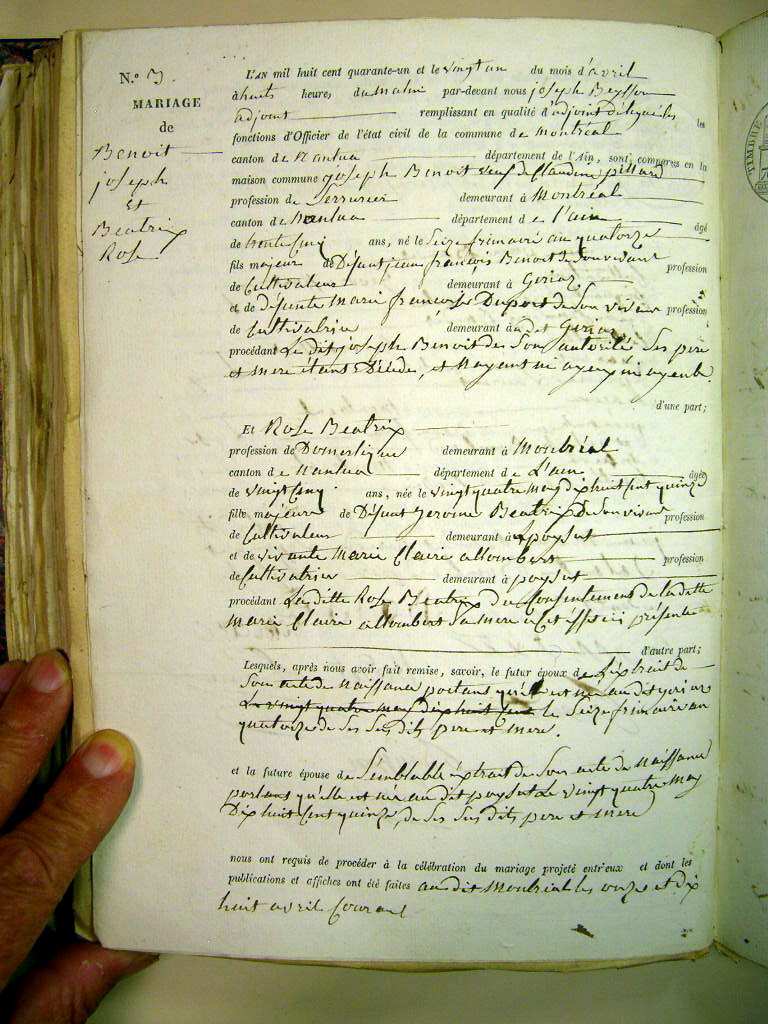 N.º 3.
MARIAGE
de
Benoit
joseph
Et
Beatrix
Rose
L'AN mil huit cent quarante-un et le vingt un du mois d'avril
à huit heures du matin par-devant nous joseph
adjoint remplissant en qualité d'adjoint délégué les
fonctions d'Officier de l'état civil de la commune de Montréal
canton de Nantua département de l'Ain, sont comparus en la
maison commune joseph Benoit veuf de Claudine pillard
profession de Serrurier demeurant à Montréal
canton de Nantua département de l'ain âgé
de trente cinq ans, né le Seize frimaire an quatorze
fils majeur de Défunt jean françois Benoit de Son vivant profession
de Cultivateur demeurant à Geriaz
et de défunte Marie françoise Dupont de Son vivant profession
de Cultivatrice demeurant au dit Geriaz
procédant Le dit joseph Benoit de Son autorité Ses pere
et mere étant Décédé, et N'ayant ni ayeux ni ayeule.
d'une part;
Et Rose Beatrix
profession de Domestique demeurant à Montréal
canton de Nantua département de L'ain âgée
de vingt Cinq ans, née le vingt quatre may dix huit Cent quinze
fille majeure de Défunt Jerome Beatrix De Son vivant profession
de Cultivateur demeurant à poysat
et de vivante Marie Claire allombert profession
de Cultivatrice demeurant à poysat
procédant La ditte Rose Beatrix du Consentement de la ditte
Marie Claire allombert Sa mere à Cet effet ici présente
d'autre part;
Lesquels, après nous avoir fait remise, savoir, le futur époux de L'extrait de
Son acte de Naissance portant qu'il est né au dit geriaz
Le vingt quatre may dix huit Cent le Seize frimaire an
quatorze de Ses Sus dits pere et mere.
et la future épouse de Semblable extrait de Son acte de Naissance
portant qu'elle est née au dit poysat Le vingt quatre May
Dix huit Cent quinze, de Ses Sus dits pere et mere
nous ont requis de procéder à la célébration du mariage projeté entr'eux et dont les
publications et affiches ont été faites au dit Montréal les onze et dix
huit avril Courant
TIMBRE